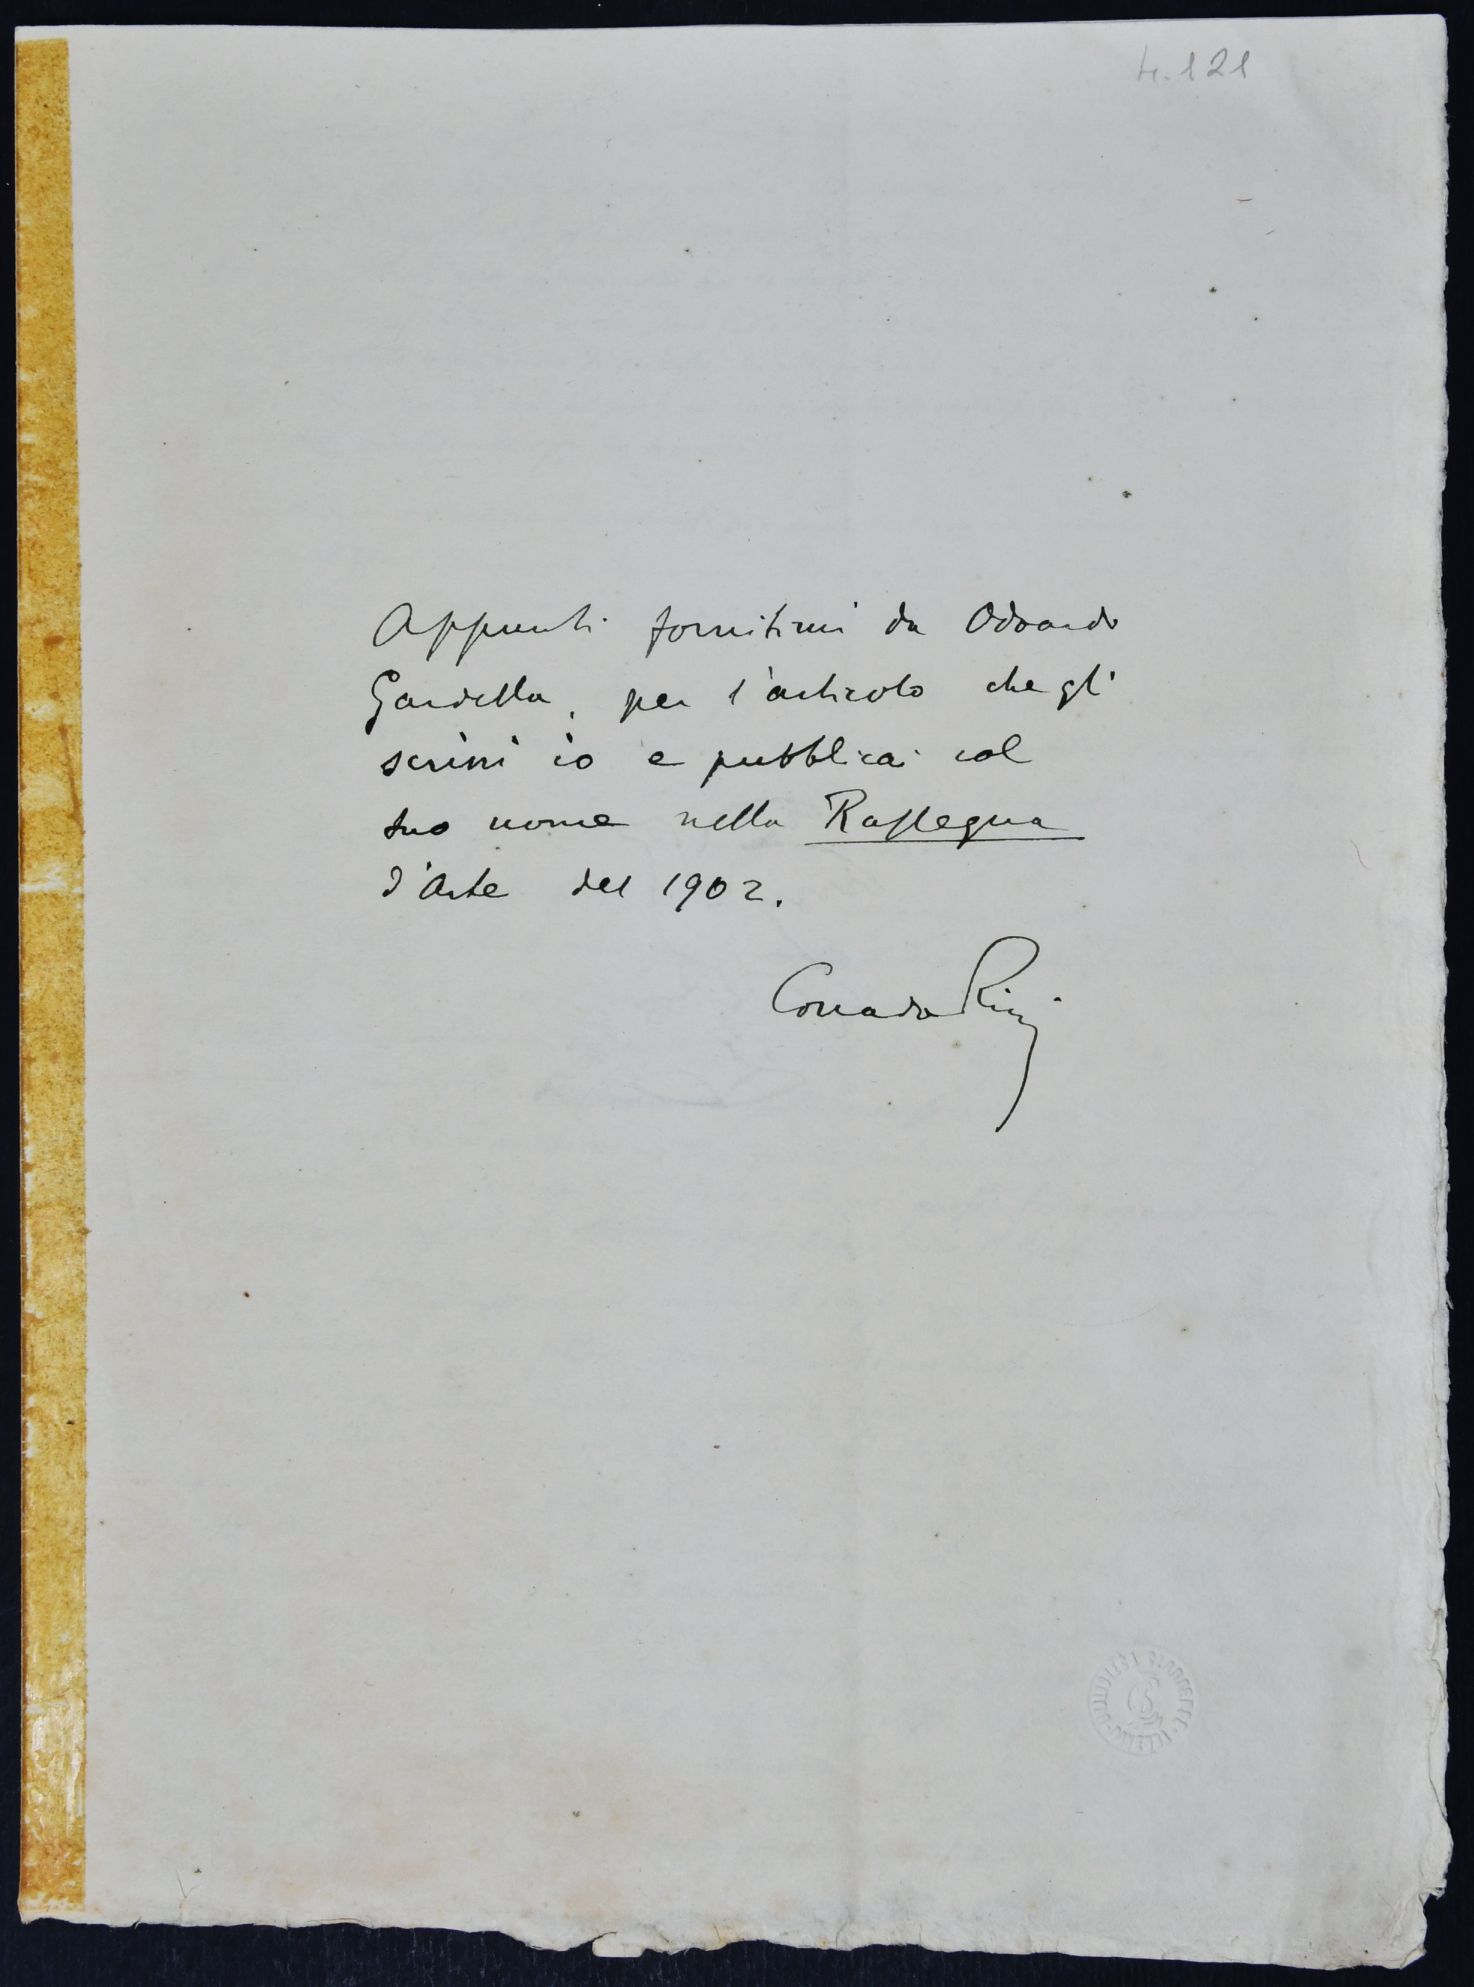 4.121
Appunti fornitimi da Odoardo
Gardella, per l'articolo che gli
scrissi io e pubblicai col
suo nome nella Rassegna
d'Arte del 1902.
Corrado Ricci